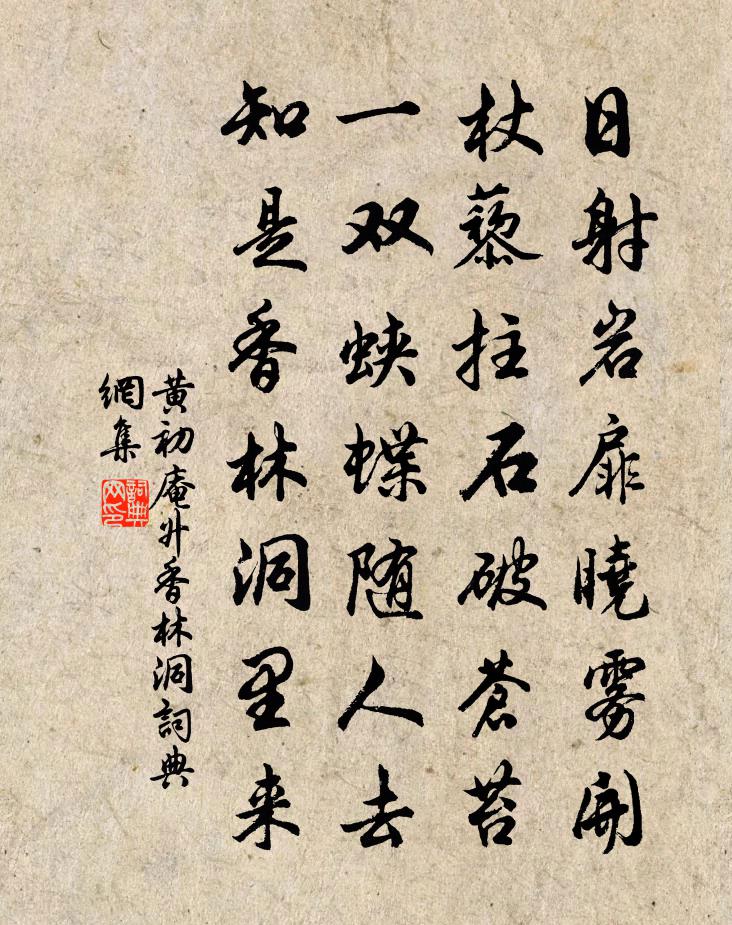 日射岩扉曉雾開
杖藜拄石破蒼苔
一双蛱蝶随人去
知是香林洞里来
黄初庵廾香林洞詞典
網集
詞典
网印